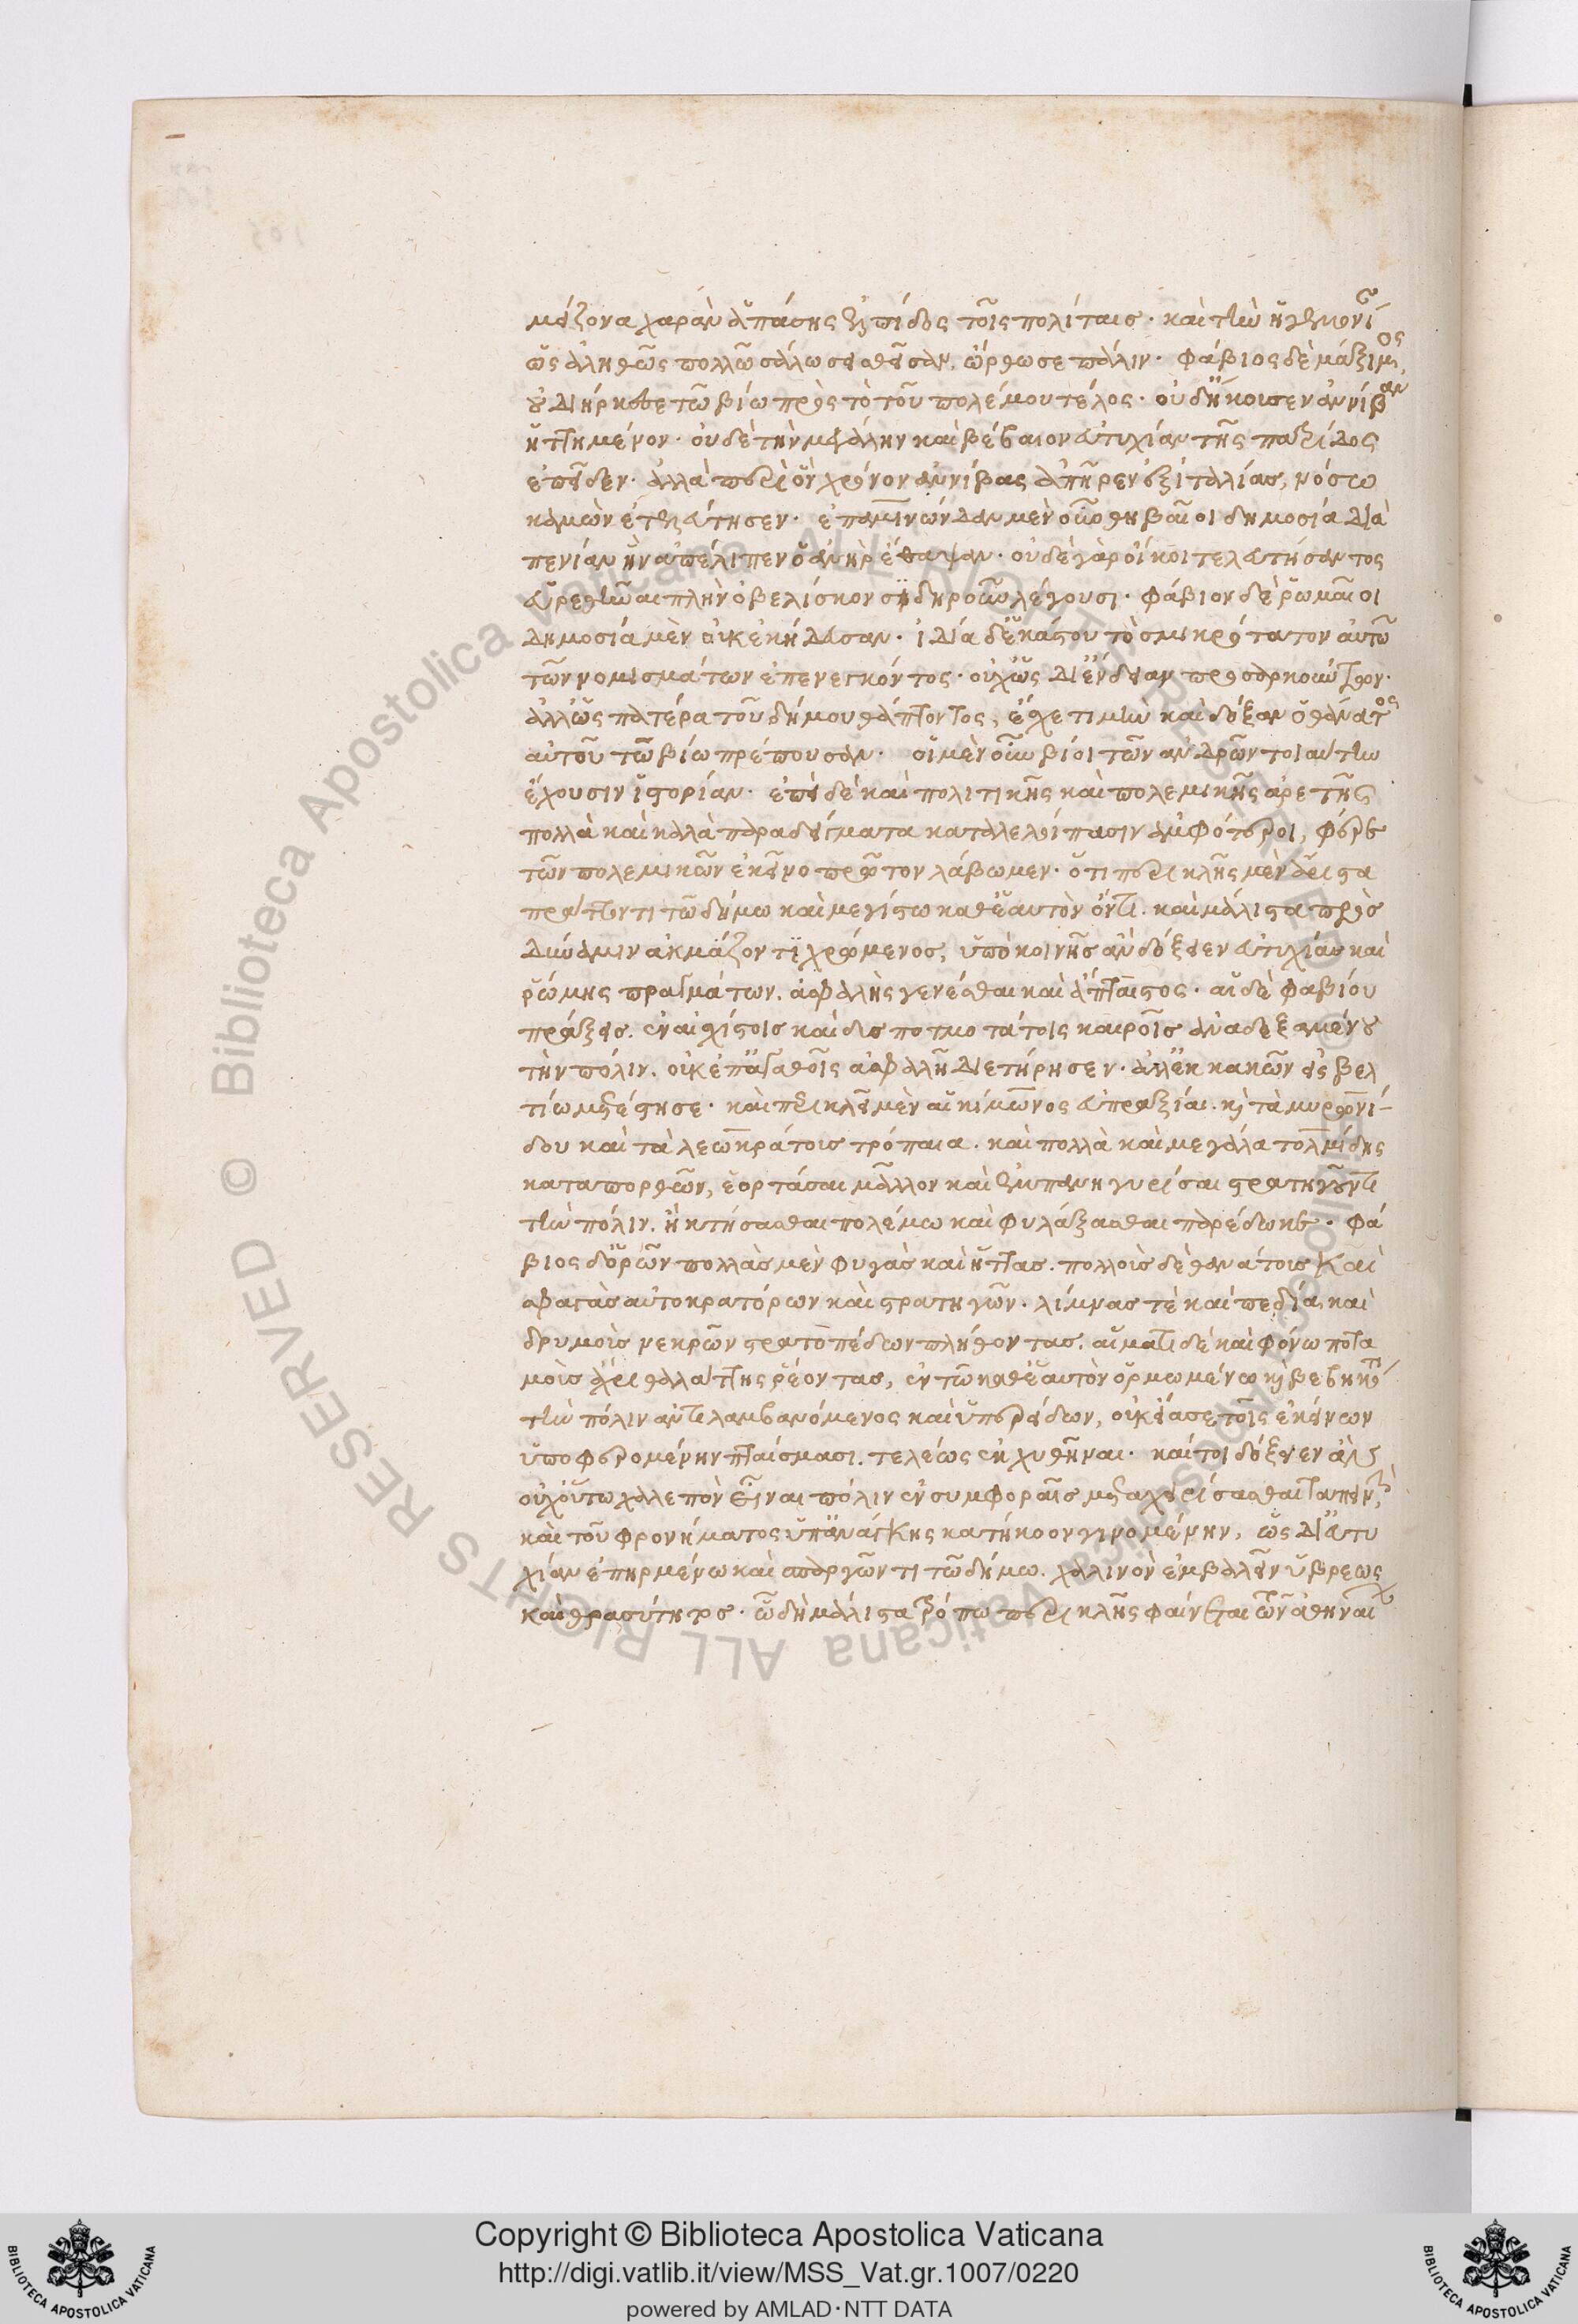 μείζονα χαρὰν ἁπάσης ἐλπίδος τοῖς πολίταις. καὶ τὴν ἡγεμονίαν
ὡς ἀληθῶς πολλῶ σάλω σεισθεῖσαν, ὤρθωσε πάλιν. Φάβιος δὲ μάξιμος,
οὐ διήρκεσε τῶ βίω πρὸς τὸ τοῦ πολέμου τέλος. οὐδ' ἤκουσεν ἀννίβαν
ἡττημένον. οὐδὲ τὴν μεγάλην καὶ βέβαιον εὐτυχίαν τῆς πατρίδος
ἐπεῖδεν. ἀλλὰ περὶ ὃν χρόνον ἀννίβας ἀπῆρεν ἐξ ἰταλίας, νόσω
καμὼν ἐτελεύτησεν. ἐπαμινώνδαν μὲν οὖν θηβαῖοι δημοσία διὰ
πενίαν ἣν ἀπέλιπεν ὁ ἀνὴρ ἔθαψαν. οὐδὲ γὰρ οἴκοι τελευτήσαντος
εὑρεθῆναι πλὴν ὀβελίσκον σιδηροῦν λέγουσι. Φάβιον δὲ ῥωμαῖοι
δημοσία μὲν οὐκ ἐκήδευσαν. ἰδία δ' ἑκάστου τὸ σμικρότατον αὐτῶ
τῶν νομισμάτων ἐπενεγκόντος. οὐχ ὡς δι' ἔνδειαν προσαρκούντων.
ἀλλ' ὡς πατέρα τοῦ δήμου θάπτοντος, ἔσχε τιμὴν καὶ δόξαν ὁ θάνατος
αὐτοῦ τῶ βίω πρέπουσαν. οἱ μὲν οὖν βίοι τῶν ἀνδρῶν τοιαύτην
ἔχουσιν ἱστορίαν. ἐπεὶ δὲ καὶ πολιτικῆς καὶ πολεμικῆς ἀρετῆς
πολλὰ καὶ καλὰ παραδείγματα καταλελοίπασιν ἀμφότεροι, φέρε
τῶν πολεμικῶν ἐκεῖνο πρῶτον λάβωμεν. ὅτι περικλῆς μὲν ἄριστα
πράττοντι τῶ δήμω καὶ μεγίστω καθ' ἑαυτὸν ὄντι. καὶ μάλιστα πρὸς
δύναμιν ἀκμάζοντι χρώμενος, ὑπὸ κοινῆς ἂν δόξειεν εὐτυχίας καὶ
ῥώμης πραγμάτων. ἀσφαλὴς γενέσθαι καὶ ἄπταιστος. αἱ δὲ φαβίου
πράξεις. ἐν αἰσχίστοις καὶ δυσποτμοτάτοις καιροῖς ἀναδεξαμένου
τὴν πόλιν. οὐκ ἐπ' ἀγαθοῖς ἀσφαλῆ διετήρησεν. ἀλλ' ἐκ κακῶν εἰς βελ
τίω μετέστησε. καὶ περικλεῖ μὲν αἱ κίμωνος εὐπραξίαι. καὶ τὰ μυρωνί-
δου καὶ τὰ λεωκράτους τρόπαια. καὶ πολλὰ καὶ μεγάλα τολμίδης
κατορθῶν, ἑορτάσαι μᾶλλον καὶ ἐμπανηγυρίσαι στρατηγοῦντι
τὴν πόλιν. ἢ κτήσασθαι πολέμω καὶ φυλάξασθαι παρέδωκε. Φά
βιος δ' ὁρῶν πολλὰς μὲν φυγὰς καὶ ἥττας. πολλοὺς δὲ θανάτους καὶ
σφαγὰς αὐτοκρατόρων καὶ στρατηγῶν. λίμνας τὲ καὶ πεδία καὶ
δρυμοὺς νεκρῶν στρατοπέδων πλήθοντας. αἵματι δὲ καὶ φόνω ποτα
μοὺς ἄχρι θαλάττης ῥέοντας, ἐν τῶ καθ' ἑαυτὸν ὁρμωμένω καὶ βεβηκότι
τὴν πόλιν ἀντιλαμβανόμενος καὶ ὑπερείδων, οὐκ εἴασε τοῖς ἐκείνων
ὑποφερομένην πταίσμασι. τελέως ἐκχυθῆναι. καίτοι δόξειεν ἂν
οὐχ οὕτω χαλεπὸν εἶναι πόλιν ἐν συμφοραῖς μεταχειρίσασθαι ταπεινὴν
καὶ τοῦ φρονήματος ὑπ' ἀνάγκης κατήκοον γινομένην, ὡς δι' εὐτυ
χίαν ἐπηρμένω καὶ σπαργῶντι τῶ δήμω. χαλινὸν ἐμβαλεῖν ὕβρεως
καὶ θρασύτητος. ὧ δὴ μάλιστα τρόπω περικλῆς φαίνεται τῶν ἀθηναίων
Copyright © Biblioteca Apostolica Vaticana
http://digi.vatlib.it/view/MSS_Vat.gr.1007/0220
powered by AMLAD·NTT DATA